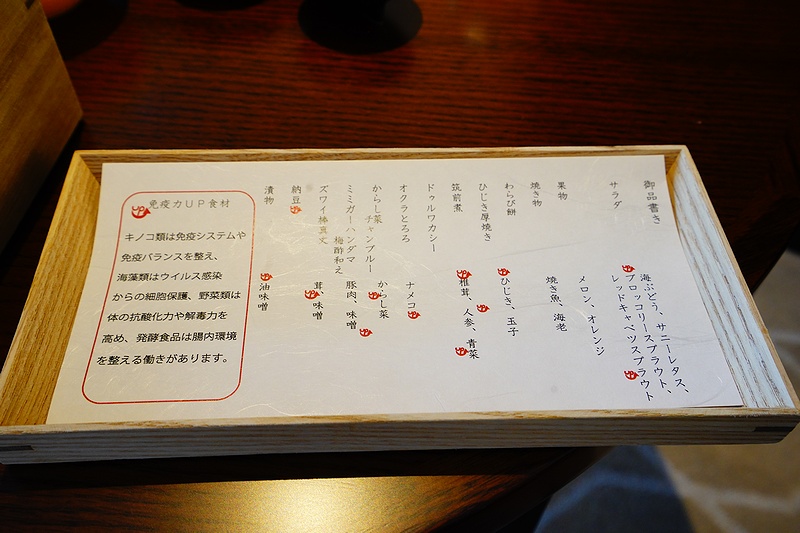 御品書き
サラダ
海ぶどう、サニーレタス、
ブロッコリースプラウト、
レッドキャベツスプラウト
果物
メロン、オレンジ
焼き物
焼き魚、海老
わらび餅
ひじき厚焼き
ひじき、玉子
筑前煮
椎茸、人参、青菜
ドゥルワカシー
オクラとろろ
ナメコ
からし菜チャンプルー
からし菜
ミミガーハンダマ
梅酢和え
豚肉、味噌
ズワイ棒真丈
茸、味噌
納豆
漬物
油味噌
免疫力UP食材
キノコ類は免疫システムや
免疫バランスを整え、
海藻類はウイルス感染
からの細胞保護、野菜類は
体の抗酸化力や解毒力を
高め、発酵食品は腸内環境
を整える働きがあります。